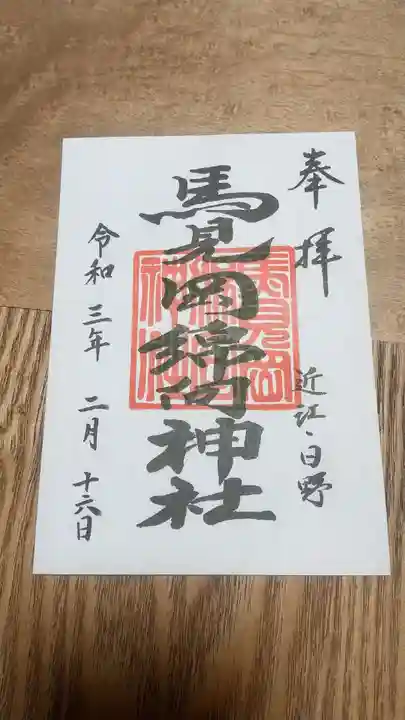 奉拝
近江・日野
馬見岡綿向神社
馬見岡
綿向
神社
令和三年 二月 十六日